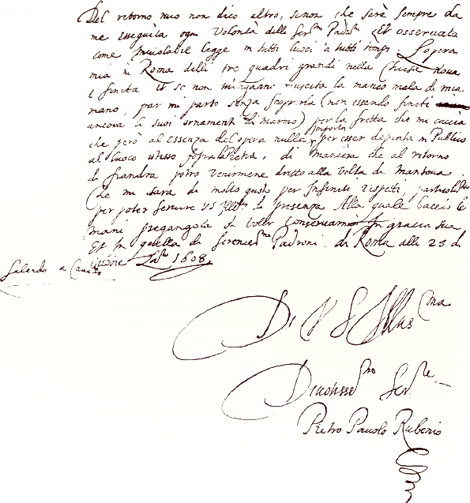 Del retorno mio non dico altro, senon che sarà sempre da
me esseguita ogni Volontà delli Ser.mi Padri. Et osservata
come inviolabil legge in tutti luoci à tutti tempi. L'opera
mia in Roma delli tre quadri grandi nella Chiesa Nova
è finita et se non m'ingani riuscita la manco mala di mia
mano, par mi parto senza scoprirla (non essendo finiti
ancora li suoi ornamenti di marmo) per la fretta che mi caccia
che però al essenza del'opera nulla importa per esser depinta in Publico
al luoco istesso sopra la pietra, di maniera che al ritorno
di fiandra potrò venirmene dritto alla volta di Mantoua
Che mi sarà di molto gusto per Infiniti rispetti,
per poter servire VS Ill.ma in presenza. Alla quale baccio le
mani pregangola di voler conservarmi In gracia sua
Et In quella di Serenes.mi Padroni. da Roma alli 28 di
1608.
Salendo a Cavallo
Di V S Illus ma
Ser.re
Pietro Pauolo Rubenio